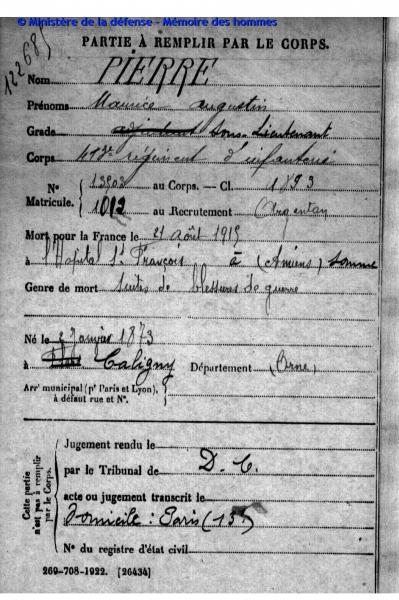 © Ministère de la défense - Mémoire des hommes
PARTIE À REMPLIR PAR LE CORPS.
Nom PIERRE
Prénoms Maurice Augustin
Grade adjudant Sous-Lieutenant
Corps régiment d'infanterie
N° Matricule. au Corps. — Cl. 1893
1012 au Recrutement Argentan
Mort pour la France le 21 août 1915
à l'Hôpital St François à (Amiens) Somme
Genre de mort suites de blessures de guerre
Né le 1873
à Caligny Département (Orne)
Arrt municipal (pr Paris et Lyon), à défaut rue et N°.
Cette partie n'est pas à remplir par le Corps.
Jugement rendu le
par le Tribunal de D. C.
acte ou jugement transcrit le
Domicile : Paris (13e)
N° du registre d'état civil
269-708-1922. [26434]